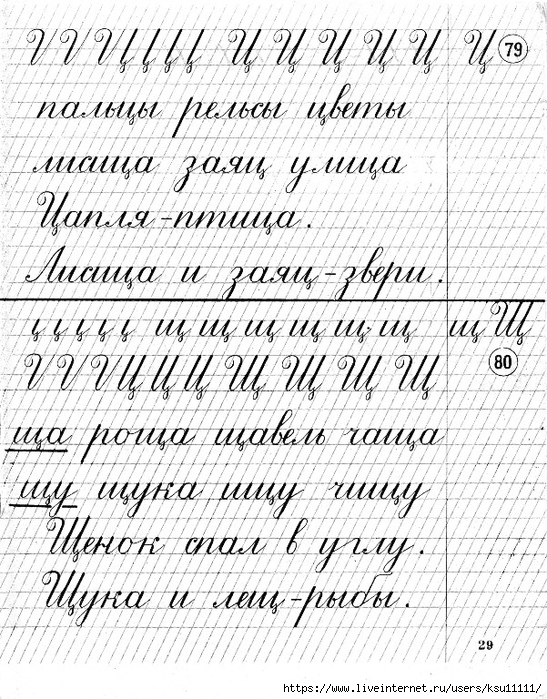 Ц Ц Ц Ц Ц Ц 79
пальцы рельсы цветы
лисица заяц улица
Цапля-птица.
Лисица и заяц-звери.
щ щ щ щ щ щ щ Щ
80
Ц Ц Ц Щ Щ Щ Щ
ща роща щавель чаща
щу щука ищу чищу
Щенок спал в углу.
Щука и лещ-рыбы.
29
https://www.liveinternet.ru/users/ksu11111/